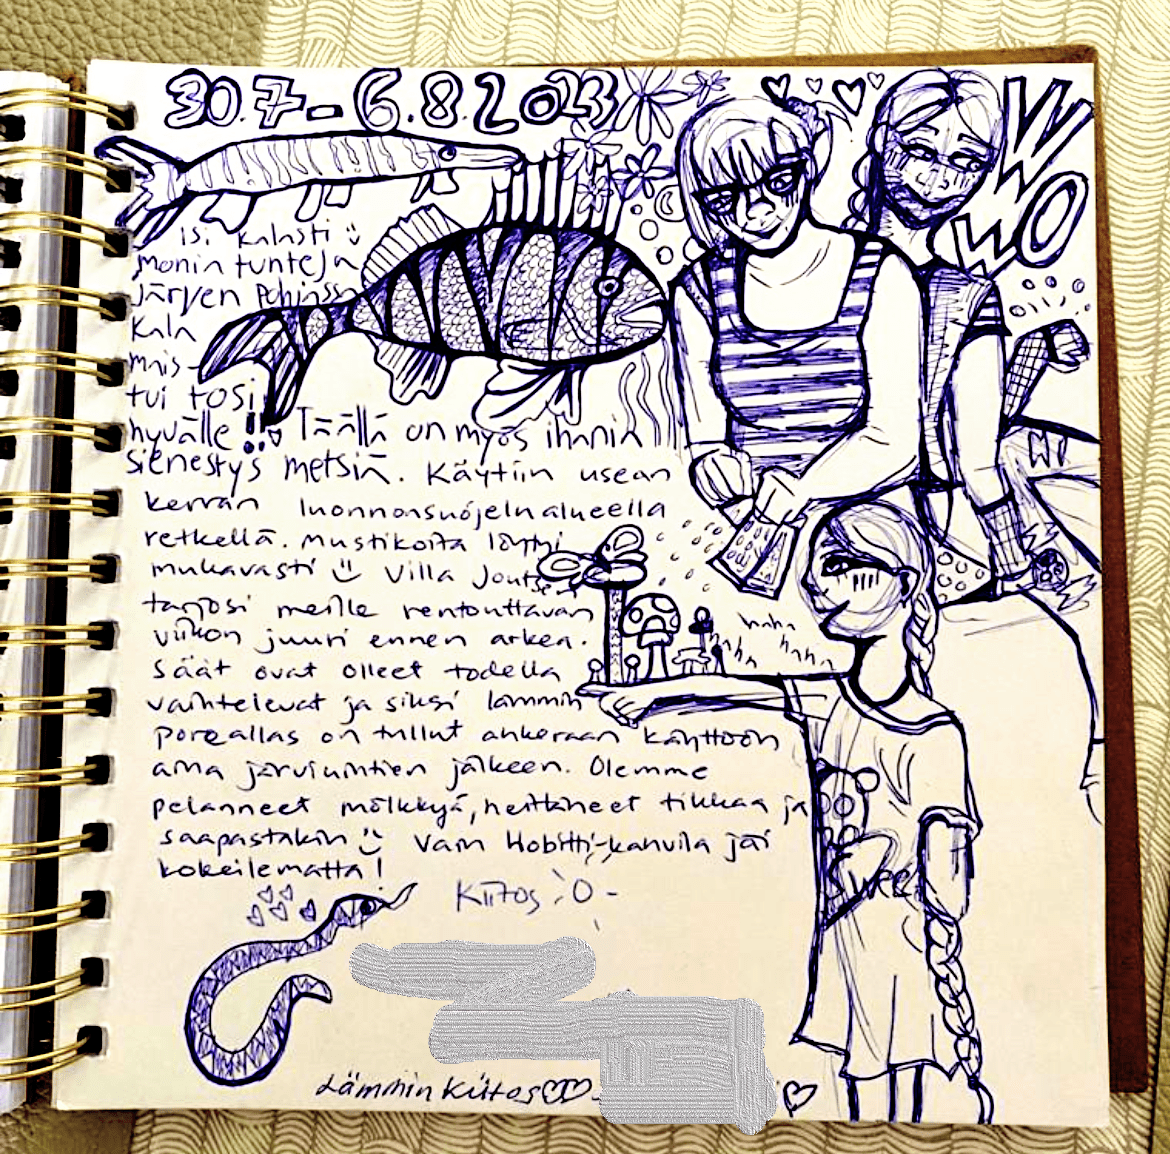 30.7-6.8.2023
WO
WO
isi kalasti :)
monin tunteja
järven pohjassa
Kala
mais-
tui tosi
hyvälle !! Täällä on myös ihania
sienestys metsiä. Käytiin usean
kerran luonnonsuojelualueella
retkellä. Mustikoita löytyi
mukavasti :) Villa Joutse
tarjosi meille rentouttavan
viikon juuri ennen arkea.
Säät ovat olleet todella
vaihtelevat ja siksi lämmin
poreallas on tullut ahkeraan käyttöön
aina järviuintien jälkeen. Olemme
pelanneet mölkkyä, heittäneet tikkaa ja
saapastakin :) Vain Hobitti-kahvila jäi
kokeilematta!
Kiitos
haha
hahaha
hahaha
Lämmin Kiitos